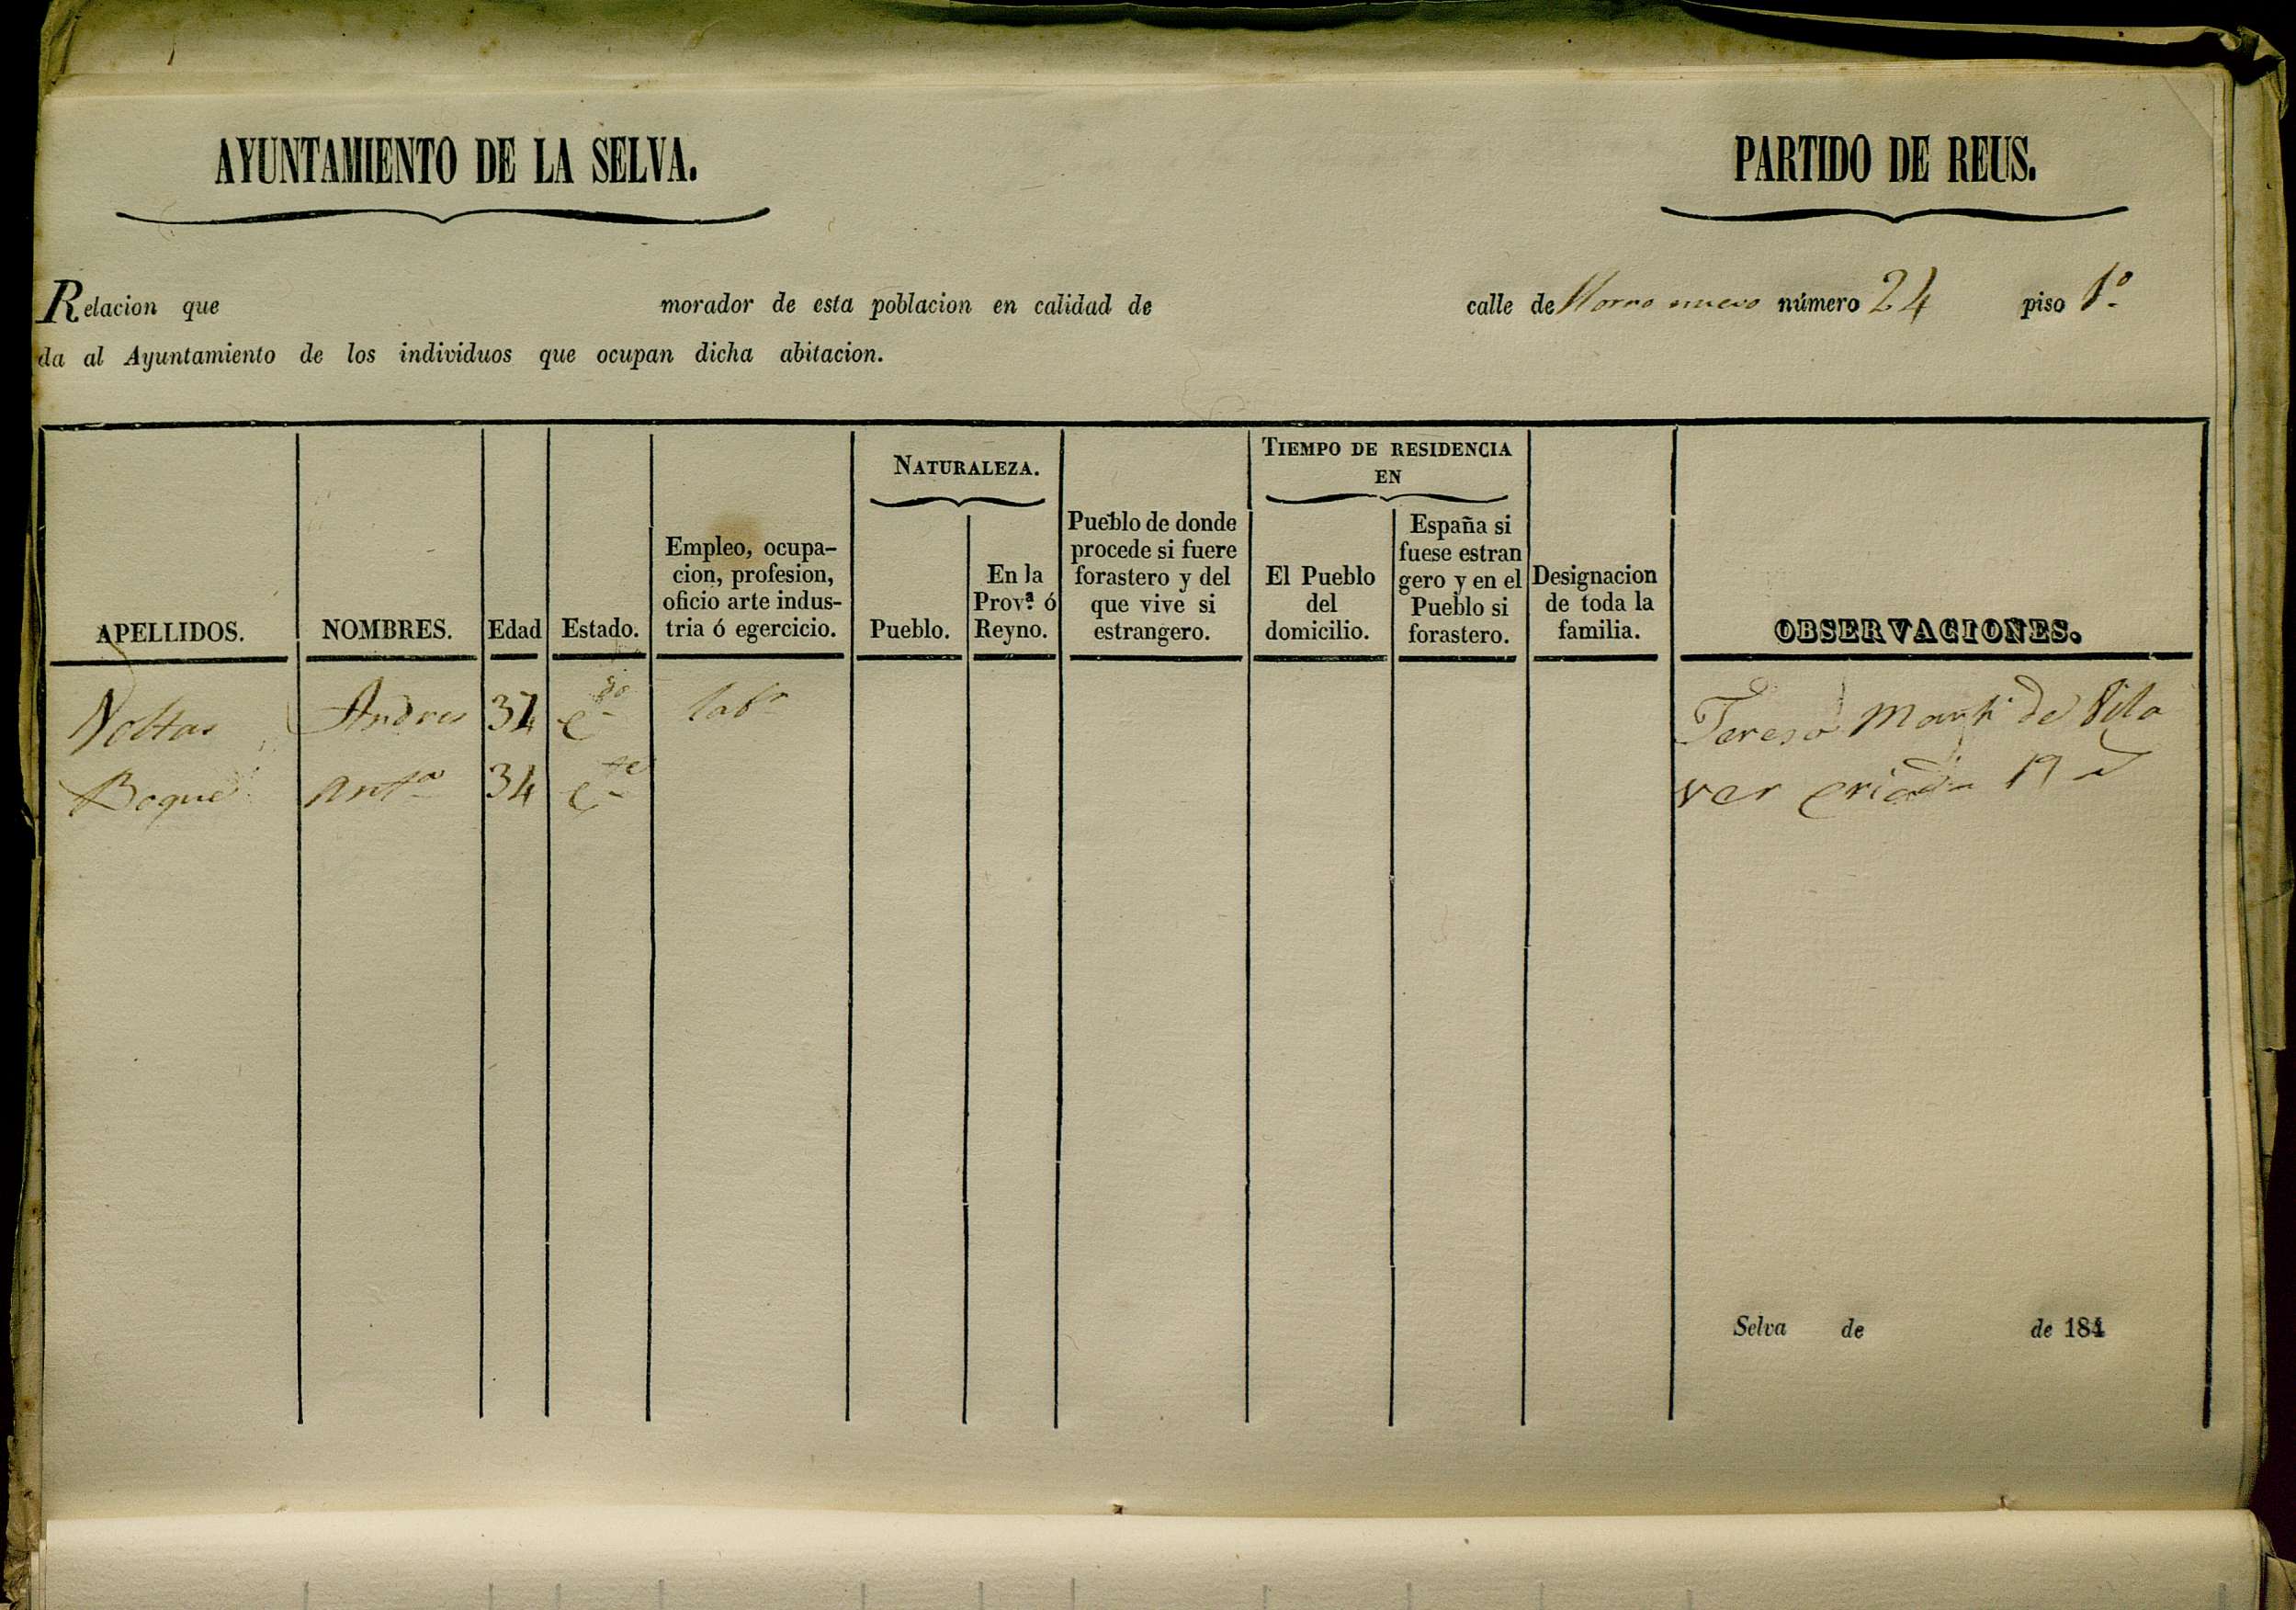 AYUNTAMIENTO DE LA SELVA.
PARTIDO DE REUS.
Relacion que morador de esta poblacion en calidad de calle de Horno nuevo número 24 piso 1º
da al Ayuntamiento de los individuos que ocupan dicha abitacion.
APELLIDOS.
NOMBRES.
Edad
Estado.
Empleo, ocupa-
cion, profesion,
oficio arte indus-
tria ó egercicio.
NATURALEZA.
Pueblo.
En la
Provª ó
Reyno.
Pueblo de donde
procede si fuere
forastero y del
que vive si
estrangero.
TIEMPO DE RESIDENCIA
EN
El Pueblo
del
domicilio.
España si
fuese estran
gero y en el
Pueblo si
forastero.
Designacion
de toda la
familia.
OBSERVACIONES.
Voltas Andres cdo labr
Boqué Anta 34 cte
Teresa Marti de Vila
ver criada 19
Selva de de 184